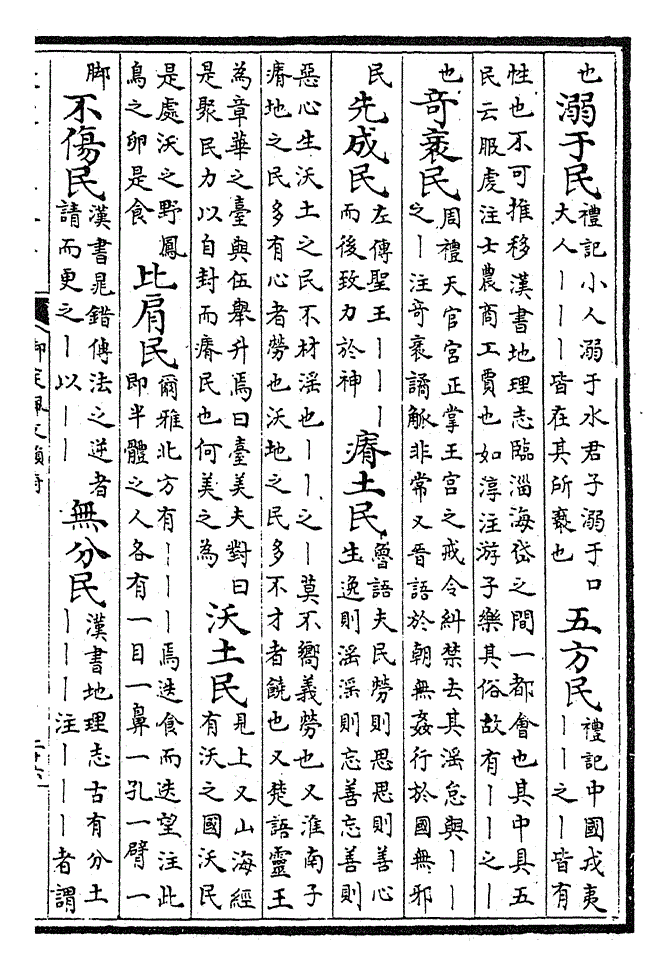 也
溺于民
禮記小人溺于水君子溺于口
大人丨丨丨皆在其所褻也
五方民
禮記中國戎夷
丨丨之丨皆有
性也不可推移漢書地理志臨淄海岱之間一都會也其中具五
民云服虔注士農商工賈也如淳注游子樂其俗故有丨丨之丨
也
奇袤民
周禮天官宮正掌王宮之戒令糾禁去其淫怠與丨丨
之丨注奇袤譎觚非常又晉語於朝無姦行於國無邪
民
先成民
左傳聖王丨丨丨
而後致力於神
瘠土民
魯語夫民勞則思思則善心
生逸則淫淫則忘善忘善則
惡心生沃土之民不材淫也丨丨之丨莫不嚮義勞也又淮南子
瘠地之民多有心者勞也沃地之民多不才者饒也又楚語靈王
為章華之臺與伍舉升焉曰臺美夫對曰
是聚民力以自封而瘠民也何美之為
沃土民
見上又山海經
有沃之國沃民
是處沃之野鳳
鳥之卵是食
比肩民
爾雅北方有丨丨丨焉迭食而迭望注此
即半體之人各有一目一鼻一孔一臂一
腳
不傷民
漢書鼂錯傳法之逆者
請而更之丨以丨丨
無分民
漢書地理志古有分土
丨丨丨注丨丨丨者謂
御定佩文韻府